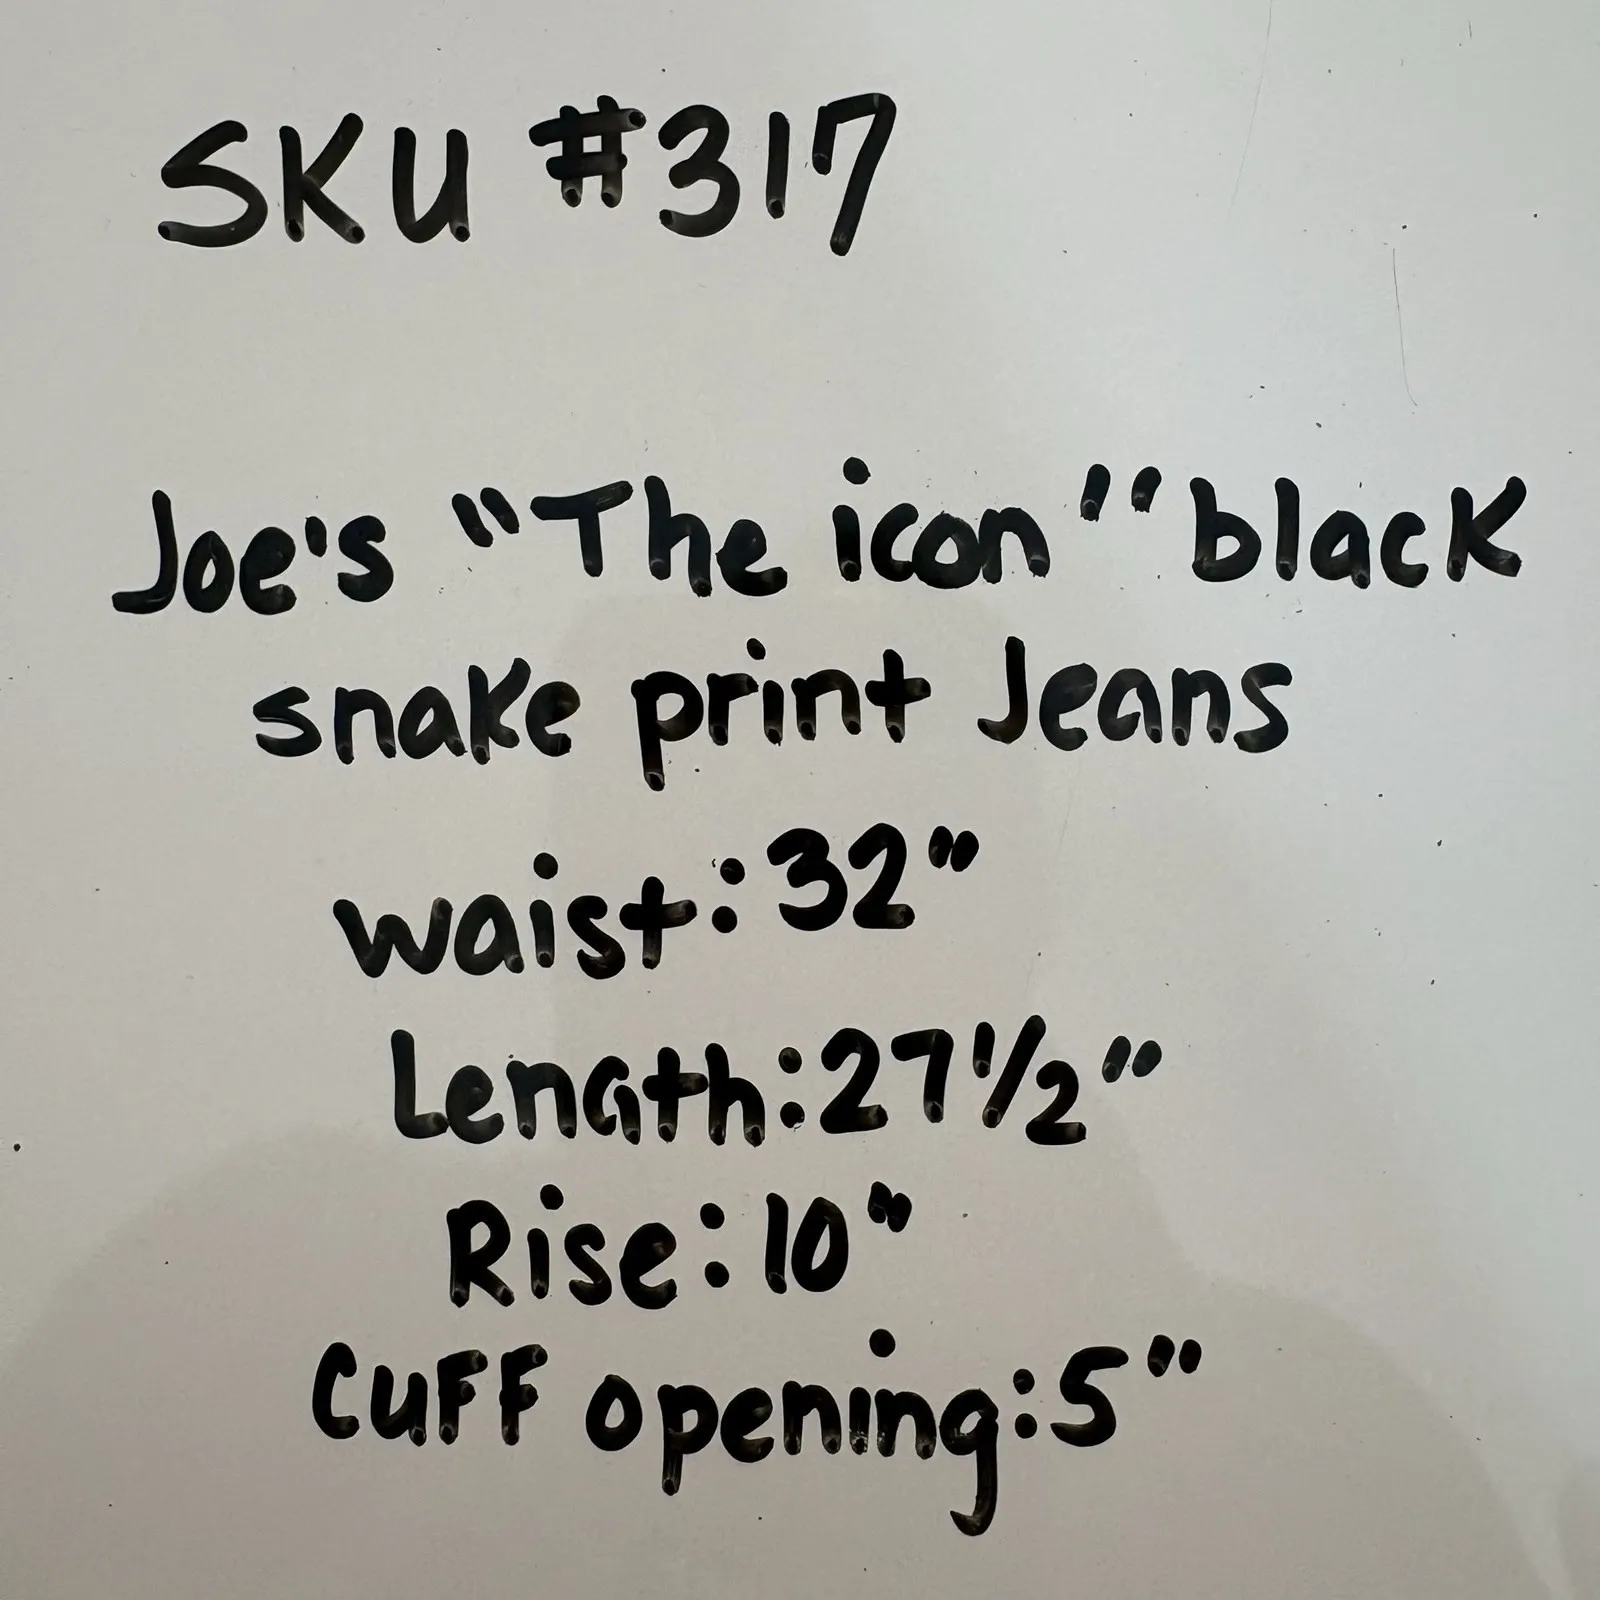 SKU #317
Joe's "The icon" black
snake print Jeans
waist: 32"
Length: 27 1/2"
Rise: 10"
Cuff opening: 5"